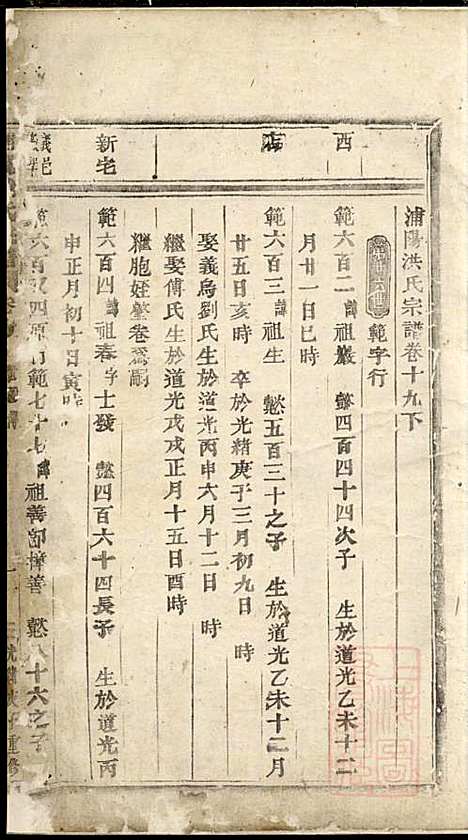 浦陽洪氏宗譜卷十九下
範字行
西
範六百二諱祖巖 懿四百四十四次子 生於道光乙未十二
月廿一日巳時
店
範六百三諱祖生 懿五百三十之子 生於道光乙未十二月
廿五日亥時 卒於光緒庚子三月初九日 時
娶義烏劉氏生於道光丙申六月十二日 時
繼娶傅氏生於道光戊戌正月十五日酉時
繼胞姪肇卷為嗣
新宅
範六百四諱祖春字士發 懿四百六十四長子 生於道光丙
申正月初十日寅時
義邑
六百 四原行範七十七諱祖善 懿八十六之子